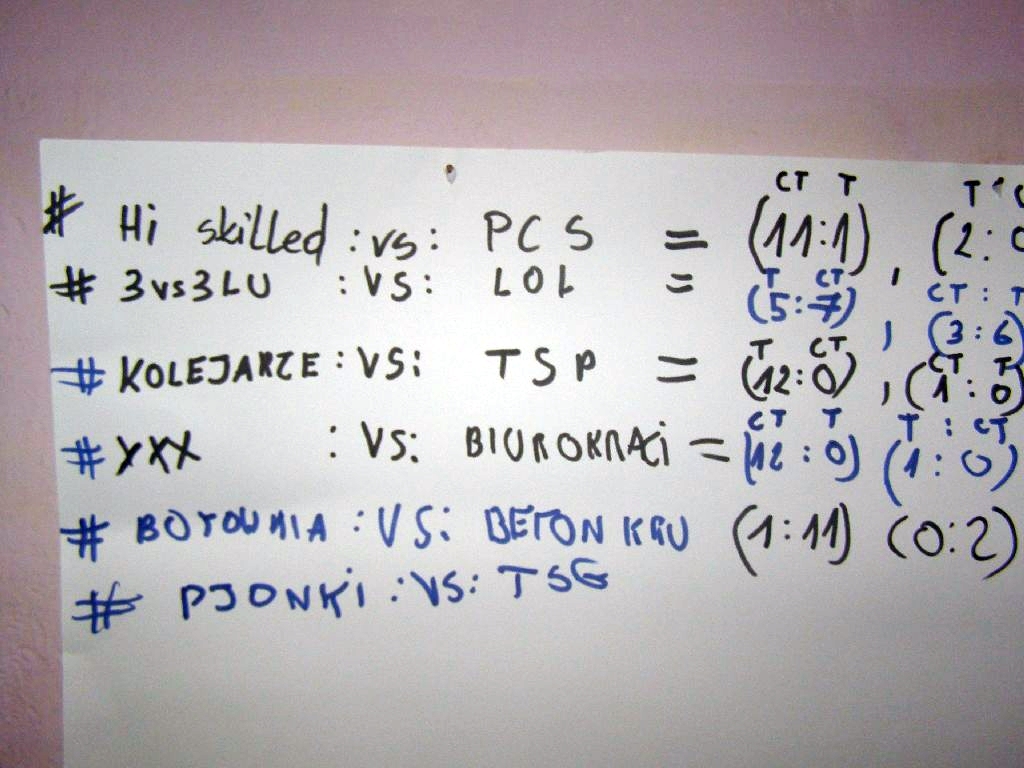 CT T T
# Hi skilled :vs: PCS = (11:1) , (2:0
T CT CT : T
# 3vs3LU :VS: LOL = (5:7) , (3:6)
T CT CT T
# KOLEJARZE :VS: TSP = (12:0) , (1:0)
CT T T : CT
# XXX :VS: BIUROKRACi = (12:0) (1:0)
# BOTOWNIA :VS: BETON KRU (1:11) (0:2)
# PJONKi :VS: TSG